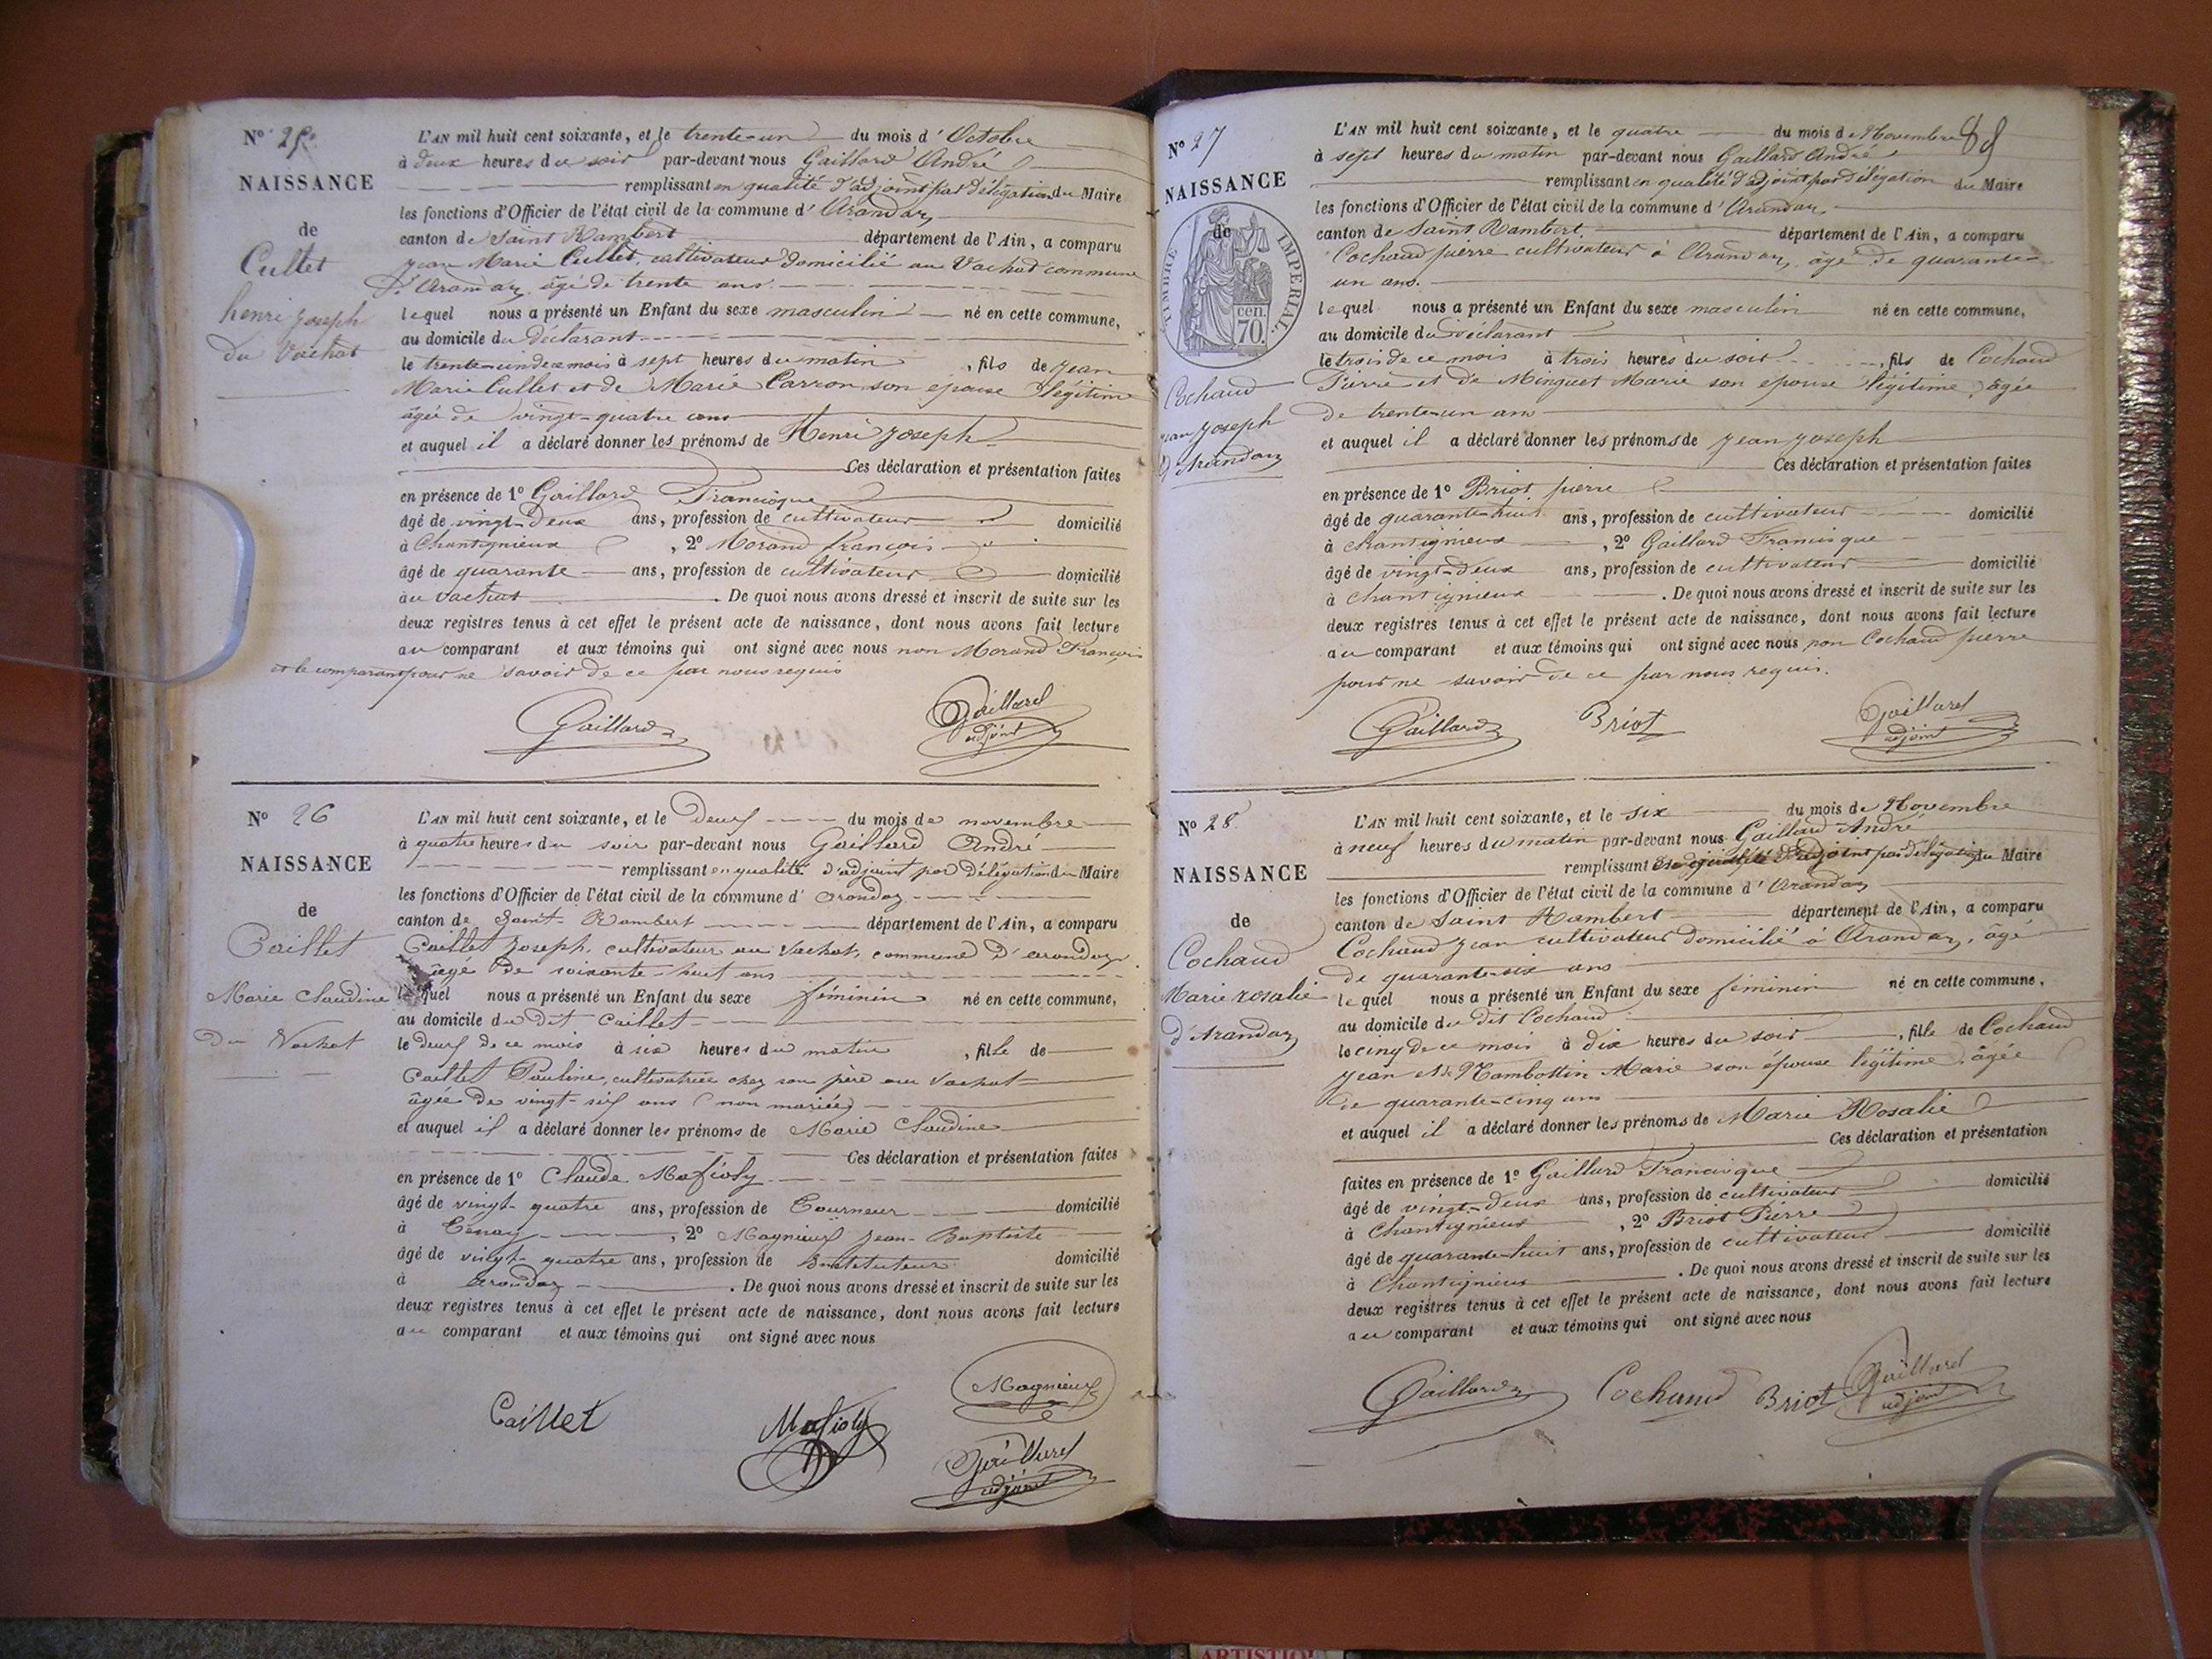 N° 25
NAISSANCE
de
Cullet
henri joseph
du Vachat
L'AN mil huit cent soixante, et le trente-un du mois d'Octobre
à deux heures du soir par-devant nous Gaillard André
remplissant en qualité d'adjoint par délégation du Maire
les fonctions d'Officier de l'état civil de la commune d'Arandaz
canton de Saint Rambert département de l'Ain, a comparu
jean Marie Cullet, cultivateur domicilié au Vachat commune
d'Arandaz, âgé de trente ans.
lequel nous a présenté un Enfant du sexe masculin né en cette commune,
au domicile du Déclarant
le trente-un de ce mois à sept heures du matin, fils de jean
Marie Cullet et de Marie Carron son épouse légitime
âgée de vingt-quatre ans
et auquel il a déclaré donner les prénoms de Henri joseph
Ces déclaration et présentation faites
en présence de 1° Gaillard Francisque
âgé de vingt-deux ans, profession de cultivateur domicilié
à Chantignieux, 2° Morand françois
âgé de quarante ans, profession de cultivateur domicilié
au Vachat. De quoi nous avons dressé et inscrit de suite sur les
deux registres tenus à cet effet le présent acte de naissance, dont nous avons fait lecture
au comparant et aux témoins qui ont signé avec nous non Morand François
et le comparant pour ne savoir de ce par nous requis
Gaillard Gaillard
adjoint
N° 26
NAISSANCE
de
Caillet
Marie Claudine
Du Vachat
L'AN mil huit cent soixante, et le deux du mois de novembre
à quatre heures du soir par-devant nous Gaillard André
remplissant en qualité d'adjoint par délégation du Maire
les fonctions d'Officier de l'état civil de la commune d'arandaz
canton de Saint Rambert département de l'Ain, a comparu
Caillet joseph, cultivateur au Vachat, commune d'arandaz
âgé de soixante-huit ans
lequel nous a présenté un Enfant du sexe féminin né en cette commune,
au domicile du dit Caillet
le deux de ce mois à six heures du matin, fille de
Caillet Pauline, cultivatrice chez son père au Vachat
âgée de vingt-six ans (non mariée)
et auquel il a déclaré donner les prénoms de Marie Claudine
Ces déclaration et présentation faites
en présence de 1° Claude Mafioly
âgé de vingt-quatre ans, profession de Tourneur domicilié
à Tenay, 2° Magnieux jean-Baptiste
âgé de vingt-quatre ans, profession de Instituteur domicilié
à arandaz. De quoi nous avons dressé et inscrit de suite sur les
deux registres tenus à cet effet le présent acte de naissance, dont nous avons fait lecture
au comparant et aux témoins qui ont signé avec nous
Magnieux
Caillet Mafioly
Gaillard
adjoint
N° 27
NAISSANCE
de
TIMBRE IMPERIAL
70 cen.
Cochaud
jean joseph
d'Arandaz
L'AN mil huit cent soixante, et le quatre du mois de Novembre
à sept heures du matin par-devant nous Gaillard André
remplissant en qualité d'adjoint par délégation du Maire
les fonctions d'Officier de l'état civil de la commune d'Arandaz
canton de Saint Rambert. département de l'Ain, a comparu
Cochaud pierre cultivateur à Arandaz, âgé de quarante-
un ans.
lequel nous a présenté un Enfant du sexe masculin né en cette commune,
au domicile du déclarant
le trois de ce mois à trois heures du soir, fils de Cochaud
Pierre et de Minguet Marie son épouse légitime, âgée
de trente-un ans
et auquel il a déclaré donner les prénoms de jean joseph
Ces déclaration et présentation faites
en présence de 1° Briot pierre
âgé de quarante-huit ans, profession de cultivateur domicilié
à chantignieux, 2° Gaillard Francisque
âgé de vingt-deux ans, profession de cultivateur domicilié
à chantignieux. De quoi nous avons dressé et inscrit de suite sur les
deux registres tenus à cet effet le présent acte de naissance, dont nous avons fait lecture
au comparant et aux témoins qui ont signé avec nous non Cochaud pierre
pour ne savoir de ce par nous requis.
Gaillard Briot Gaillard
adjoint
N° 28
NAISSANCE
de
Cochaud
Marie rosalie
d'Arandaz
L'AN mil huit cent soixante, et le six du mois de Novembre
à neuf heures du matin par-devant nous Gaillard André
remplissant en qualité d'adjoint par délégation du Maire
les fonctions d'Officier de l'état civil de la commune d'Arandaz
canton de Saint Rambert département de l'Ain, a comparu
Cochaud jean cultivateur domicilié à Arandaz, âgé
de quarante-six ans
lequel nous a présenté un Enfant du sexe féminin né en cette commune,
au domicile du dit Cochaud
le cinq de ce mois à dix heures du soir, fille de Cochaud
jean et de Nambottin Marie son épouse légitime, âgée
de quarante-cinq ans
et auquel il a déclaré donner les prénoms de Marie Rosalie
Ces déclaration et présentation
faites en présence de 1° Gaillard Francisque
âgé de vingt-deux ans, profession de cultivateur domicilié
à Chantignieux, 2° Briot Pierre
âgé de quarante-huit ans, profession de cultivateur domicilié
à Chantignieux. De quoi nous avons dressé et inscrit de suite sur les
deux registres tenus à cet effet le présent acte de naissance, dont nous avons fait lecture
au comparant et aux témoins qui ont signé avec nous
Gaillard Cochaud Briot Gaillard
adjoint